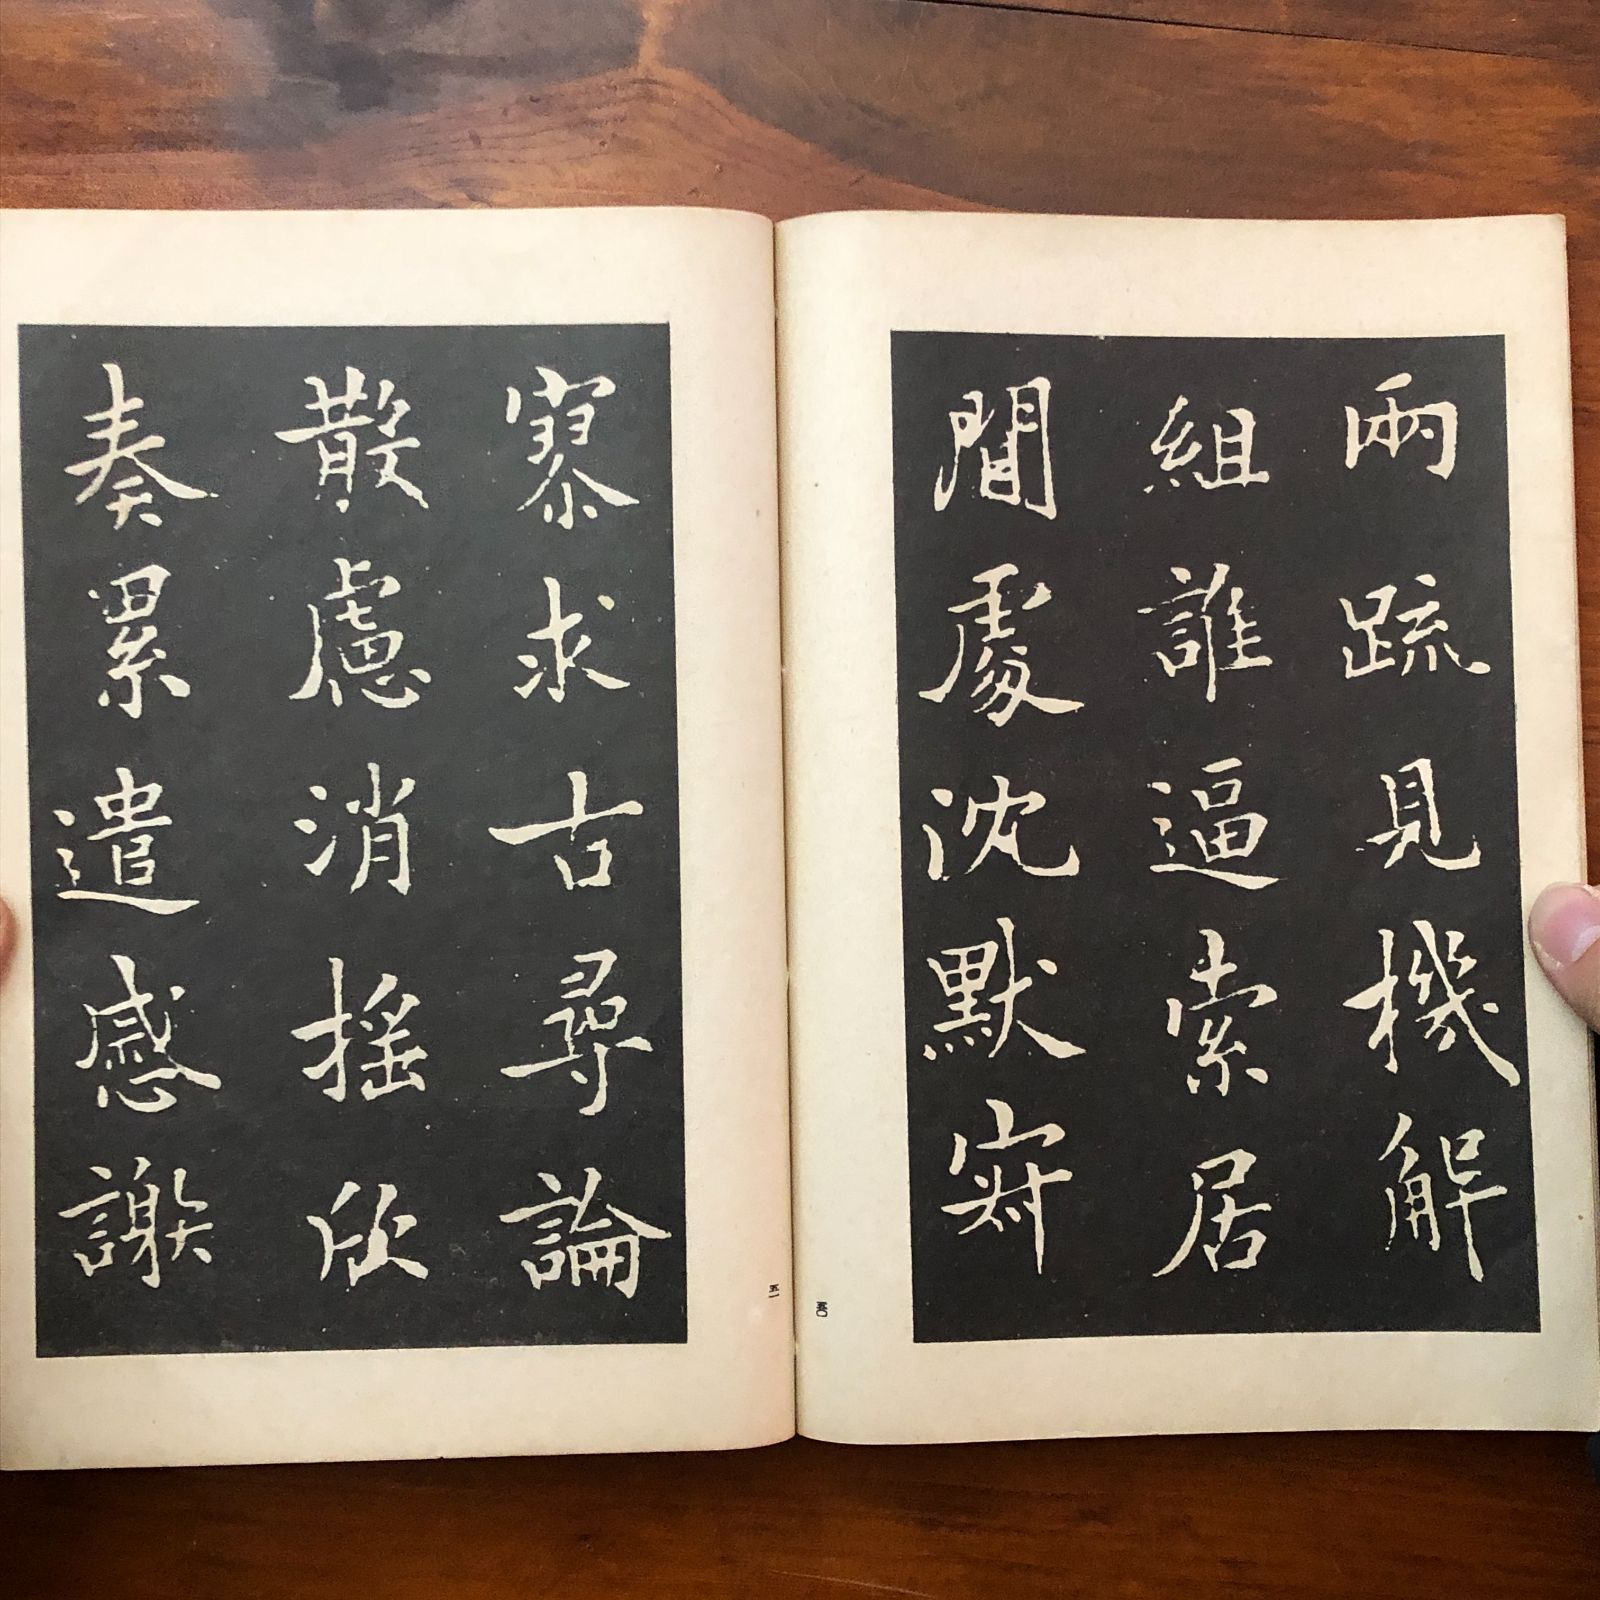 兩疏見機解
組誰逼索居
閒處沈默寂
寥求古尋論
散慮消搖欣
奏累遣慼謝
五〇
五一